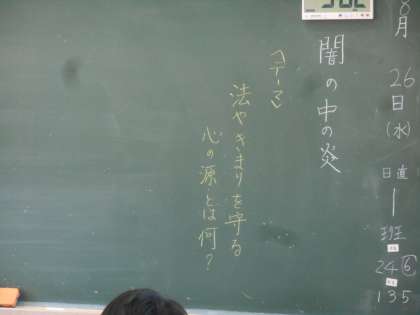 8月26日(水)
日直
1班
246
135
闇の中の炎
〈テーマ〉
法やきまりを守る
心の源とは何?